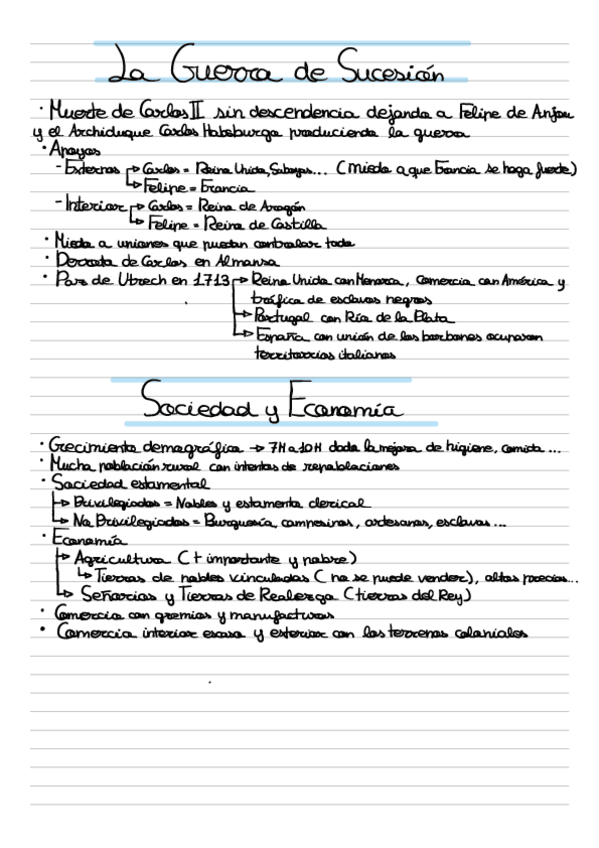 La Guerra de Sucesión
· Muerte de Carlos II sin descendencia dejando a Felipe de Anjou
y el Archiduque Carlos Habsburgo produciendo la guerra
· Apoyos
- Externos → Carlos = Reino Unido, Saboya... (miedo a que Francia se haga fuerte)
→ Felipe = Francia
- Interior → Carlos = Reino de Aragón
→ Felipe = Reino de Castilla
· Miedo a uniones que puedan controlar todo
· Derrota de Carlos en Almansa
· Paz de Utrech en 1713 → Reino Unido con Menorca, comercio con América y
tráfico de esclavos negros
→ Portugal con Río de la Plata
→ España con unión de los borbones ocuparon
territorrios italianos
Sociedad y Economía
· Crecimiento demográfico → 7M a 10M dado la mejora de higiene, comida ...
· Mucha población rural con intentos de repoblaciones
· Sociedad estamental
→ Privilegiados = Nobles y estamento clerical
→ No Privilegiados = Burguesía, campesinos, artesanos, esclavos...
· Economía
→ Agricultura (+ importante y pobre)
→ Tierras de nobles vinculadas (no se puede vender), altos precios...
→ Señoríos y Tierras de Realengo (tierras del Rey)
· Comercio con gremios y manufacturas
· Comercio interior escaso y exterior con los terrenos coloniales